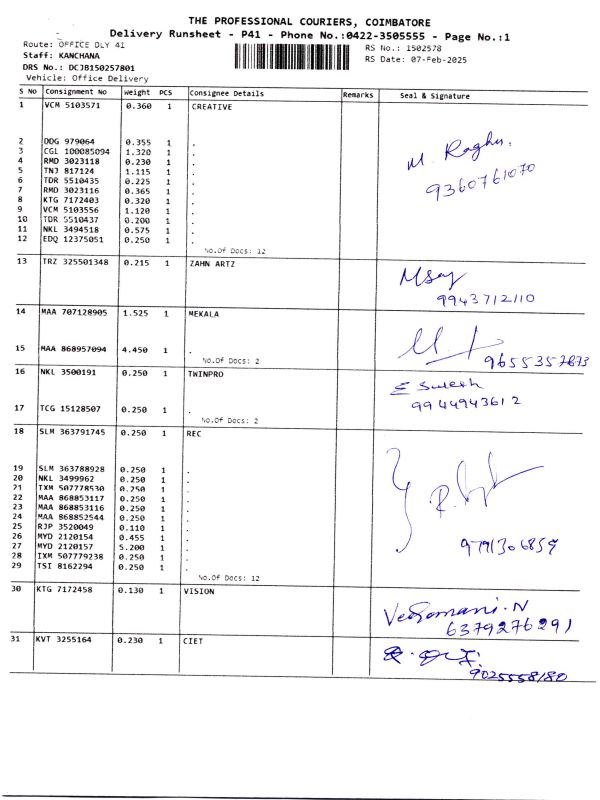 THE PROFESSIONAL COURIERS, COIMBATORE
Delivery Runsheet - P41 - Phone No.:0422-3505555 - Page No.:1
Route: OFFICE DLY 41
RS No.: 1502578
Staff: KANCHANA
RS Date: 07-Feb-2025
DRS No.: DCJB150257801
Vehicle: Office Delivery
S No Consignment No Weight PCS Consignee Details Remarks Seal & Signature
1 VCM 5103571 0.360 1 CREATIVE
2 DDG 979064 0.355 1 .
3 CGL 100085094 1.320 1 .
4 RMD 3023118 0.230 1 .
5 TNJ 817124 1.115 1 .
6 TDR 5510435 0.225 1 .
7 RMD 3023116 0.365 1 .
8 KTG 7172403 0.320 1 .
9 VCM 5103556 1.120 1 .
10 TDR 5510437 0.200 1 .
11 NKL 3494518 0.575 1 .
12 EDQ 12375051 0.250 1 .
M. Raghu.
9360761070
No.Of Docs: 12
13 TRZ 325501348 0.215 1 ZAHN ARTZ
9943712110
14 MAA 707128905 1.525 1 MEKALA
15 MAA 868957094 4.450 1 .
No.Of Docs: 2
9655357873
16 NKL 3500191 0.250 1 TWINPRO
E Suresh
9944943612
17 TCG 15128507 0.250 1 .
No.Of Docs: 2
18 SLM 363791745 0.250 1 REC
19 SLM 363788928 0.250 1 .
20 NKL 3499962 0.250 1 .
21 IXM 507778530 0.250 1 .
22 MAA 868853117 0.250 1 .
23 MAA 868853116 0.250 1 .
24 MAA 868852544 0.250 1 .
25 RJP 3520049 0.110 1 .
26 MYD 2120154 0.455 1 .
27 MYD 2120157 5.200 1 .
28 IXM 507779238 0.250 1 .
29 TSI 8162294 0.250 1 .
9791306859
No.Of Docs: 12
30 KTG 7172458 0.130 1 VISION
6379276291
31 KVT 3255164 0.230 1 CIET
9025558180